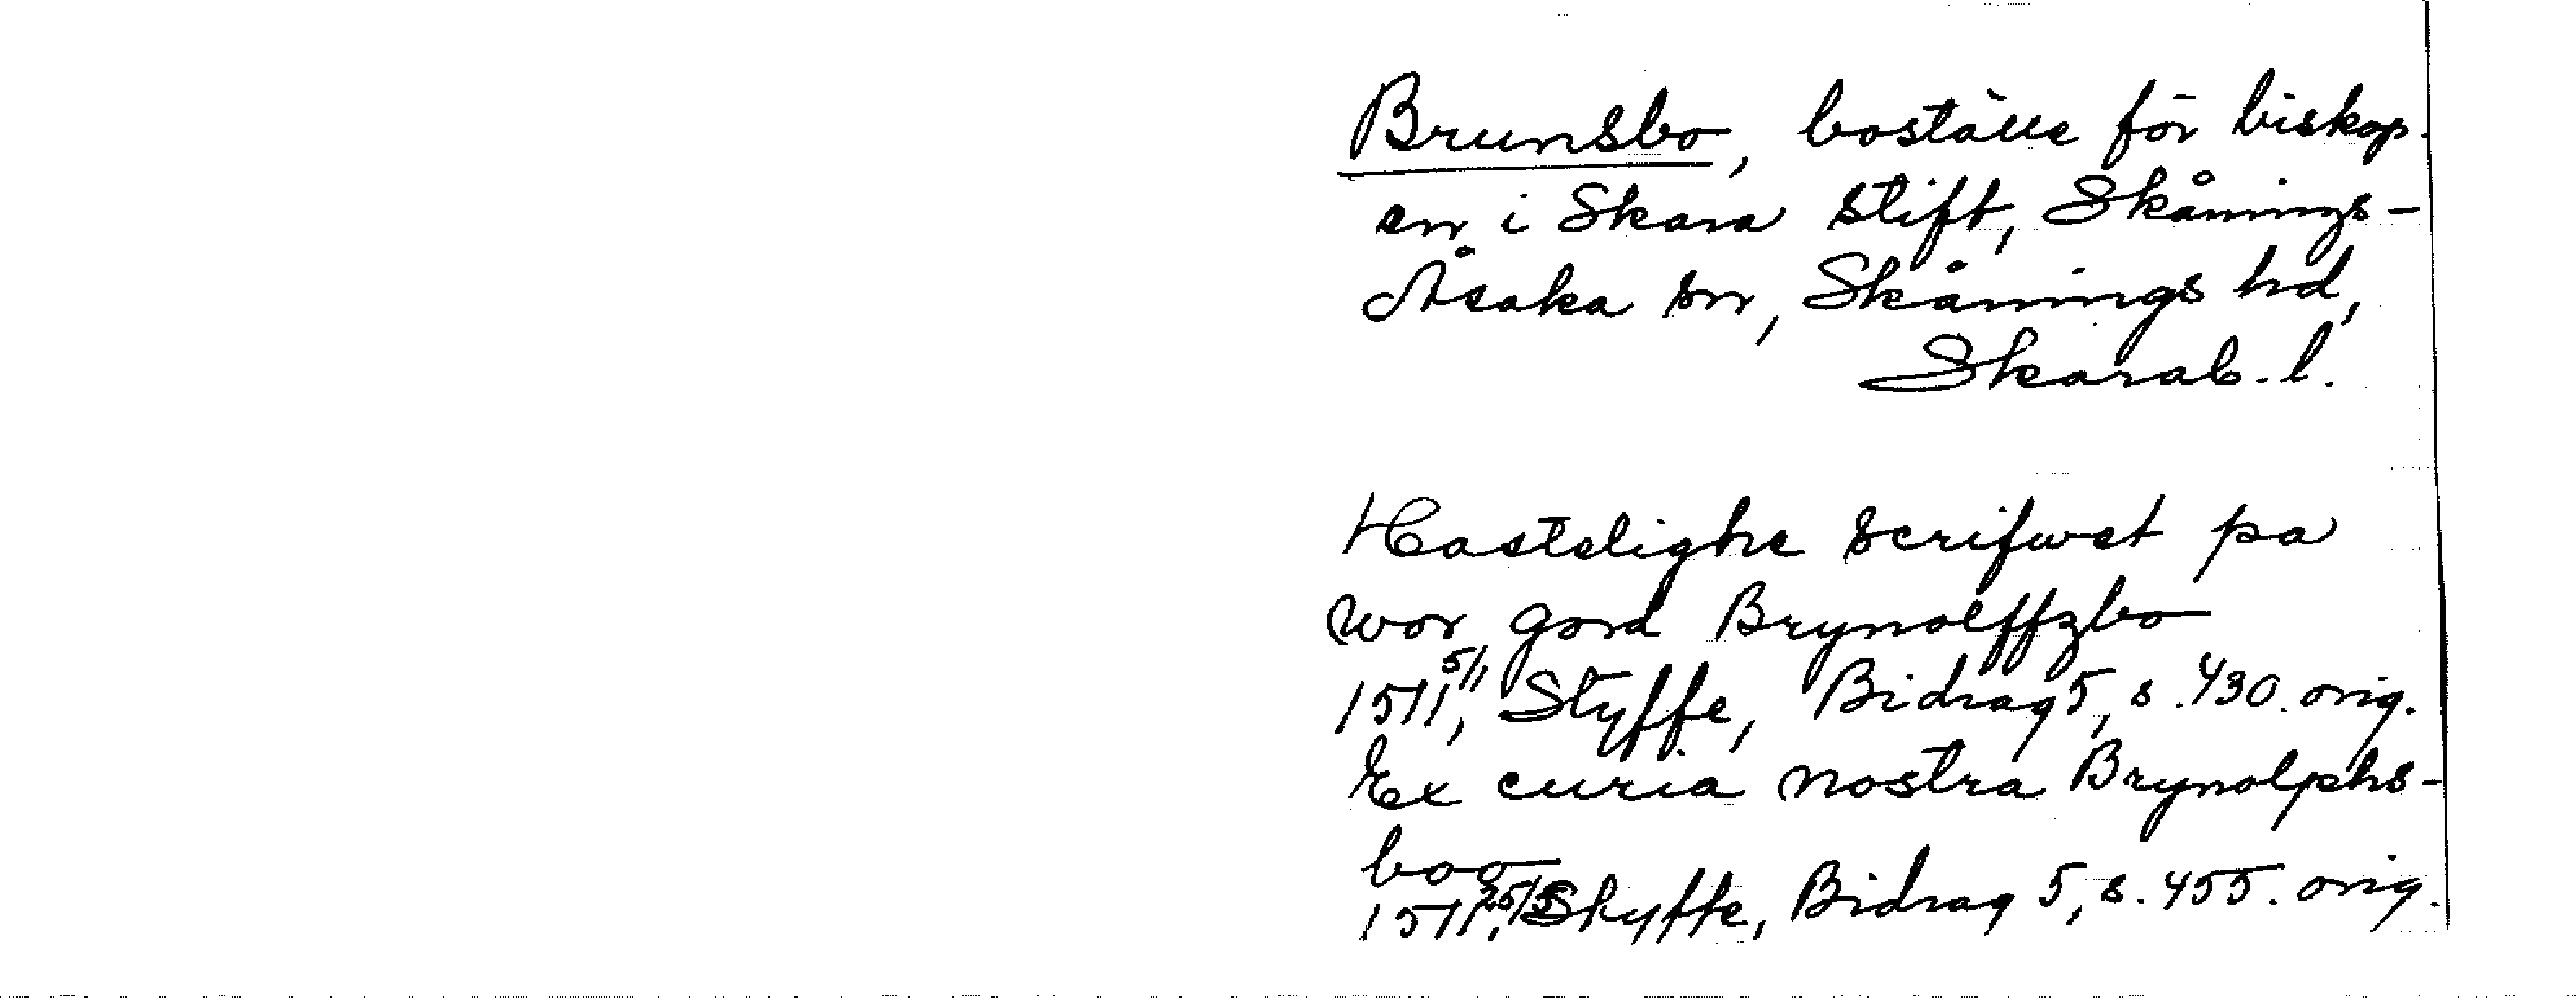 Brunsbo, boställe för biskop-
en i Skara stift, Skånings-
Åsaka sn, Skånings hd,
Skarab. l.
Hastelighe scrifwet pa
wor gord Brynolffzbo
1511 5/1, Styffe, Bidrag 5, s. 430. orig.
Ex curia nostra Brynolphs-
boo
1511 25/5, Styffe, Bidrag 5, s. 455. orig.